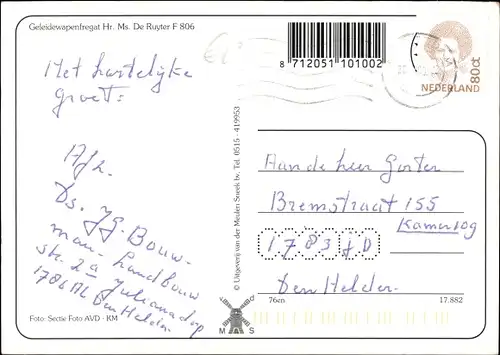 Geleidewapenfregat Hr. Ms. De Ruyter F 806
8 712051 101002
80ct
NEDERLAND
Met hartelijke
groet:
Afz.
Ds. J.G. Bouw-
man - Landbouw
str. 2a Julianadorp
1786 Den Helder
Foto: Sectie Foto AVD - KM
© Uitgeverij van der Meulen Sneek bv. Tel. 0515 - 419953
M S
Aan de heer Gorter
Bremstraat 155
Kamer 109
1783 JD
Den Helder
76en
17.882